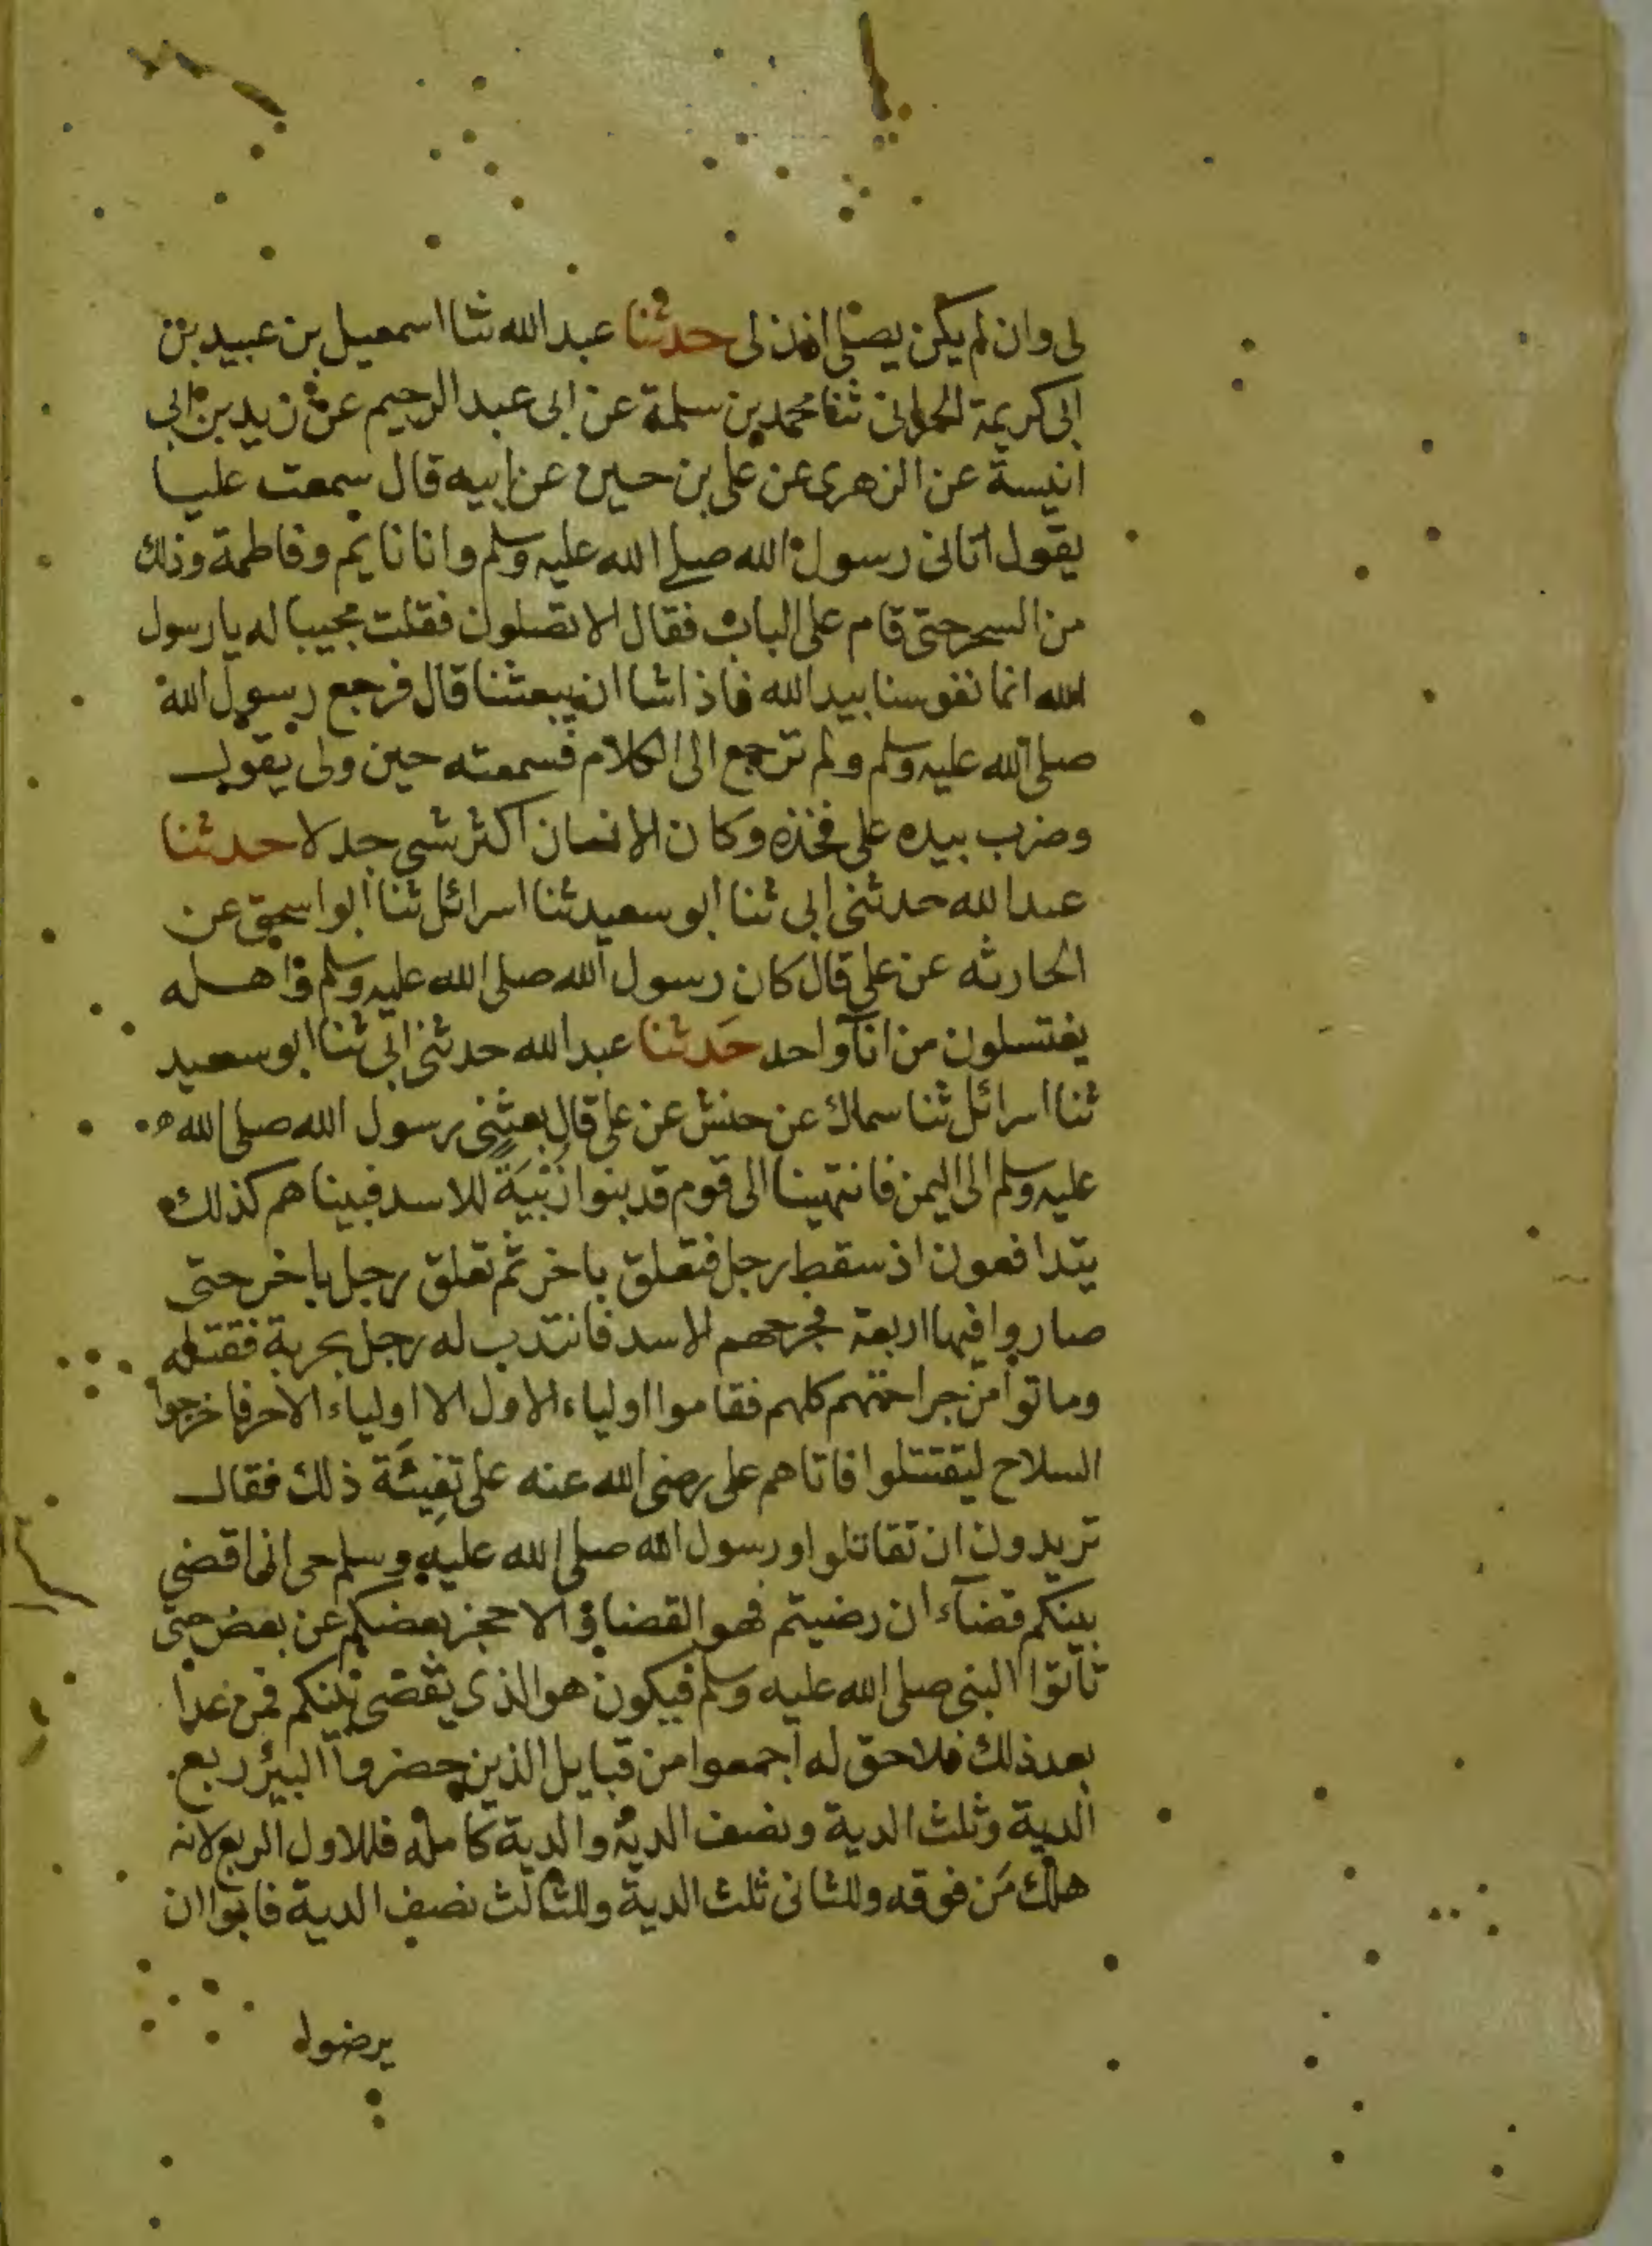 لى وان لم يكن يصلى اذن لى حدثنا عبد الله ثنا اسمعيل بن عبيد بن
ابى كريمة الحرانى ثنا محمد بن سلمة عن ابى عبد الرحيم عن زيد بن ابى
انيسة عن الزهرى عن على بن حسين عن ابيه قال سمعت عليا
يقول اتانى رسول الله صلى الله عليه وسلم وانا نايم وفاطمة وذلك
من السحر حتى قام على الباب فقال الا تصلون فقلت مجيبا له يا رسول
الله انما نفوسنا بيد الله فاذا شا ان يبعثنا قال فرجع رسول الله
صلى الله عليه وسلم ولم ترجع الى الكلام فسمعته حين ولى يقول
وضرب بيده على فخذه وكان الانسان اكثر شى جدلا حدثنا
عبد الله حدثنى ابى ثنا ابو سعيد ثنا اسرائل ثنا ابو اسحق عن
الحارثه عن على قال كان رسول الله صلى الله عليه وسلم واهله
يغتسلون من انآ واحد حدثنا عبد الله حدثنى ابى ثنا ابو سعيد
ثنا اسرائل ثنا سماك عن حنش عن على قال بعثنى رسول الله صلى الله
عليه وسلم الى اليمن فانتهينا الى قوم قد بنوا زُبْيَةً للاسد فبيناهم كذلك
يتدافعون اذ سقط رجل فتعلق باخر ثم تعلق رجل باخر حتى
صاروا فيها اربعة فجرحهم الاسد فانتدب له رجل بحربة فقتله
وماتوا من جراحتهم كلهم فقاموا اولياء الاول الا اولياء الاخر فاخرجوا
السلاح ليقتتلوا فاتاهم على رضى الله عنه على تفِيئَة ذلك فقال
تريدون ان تقاتلوا ورسول الله صلى الله عليه وسلم حى انما اقضى
بينكم قضآء ان رضيتم فهو القضا والا حجز بعضكم عن بعض حتى
تأتوا النبى صلى الله عليه وسلم فيكون هو الذى يقضى بينكم فمن عدا
بعد ذلك فلا حق له اجمعوا من قبايل الذين حضروا البئر ربع
الدية وثلث الدية ونصف الدية والدية كامله فللاول الربع لانه
هلك مَن فوقه وللثانى ثلث الدية وللثالث نصف الدية فابوا ان
يرضوا